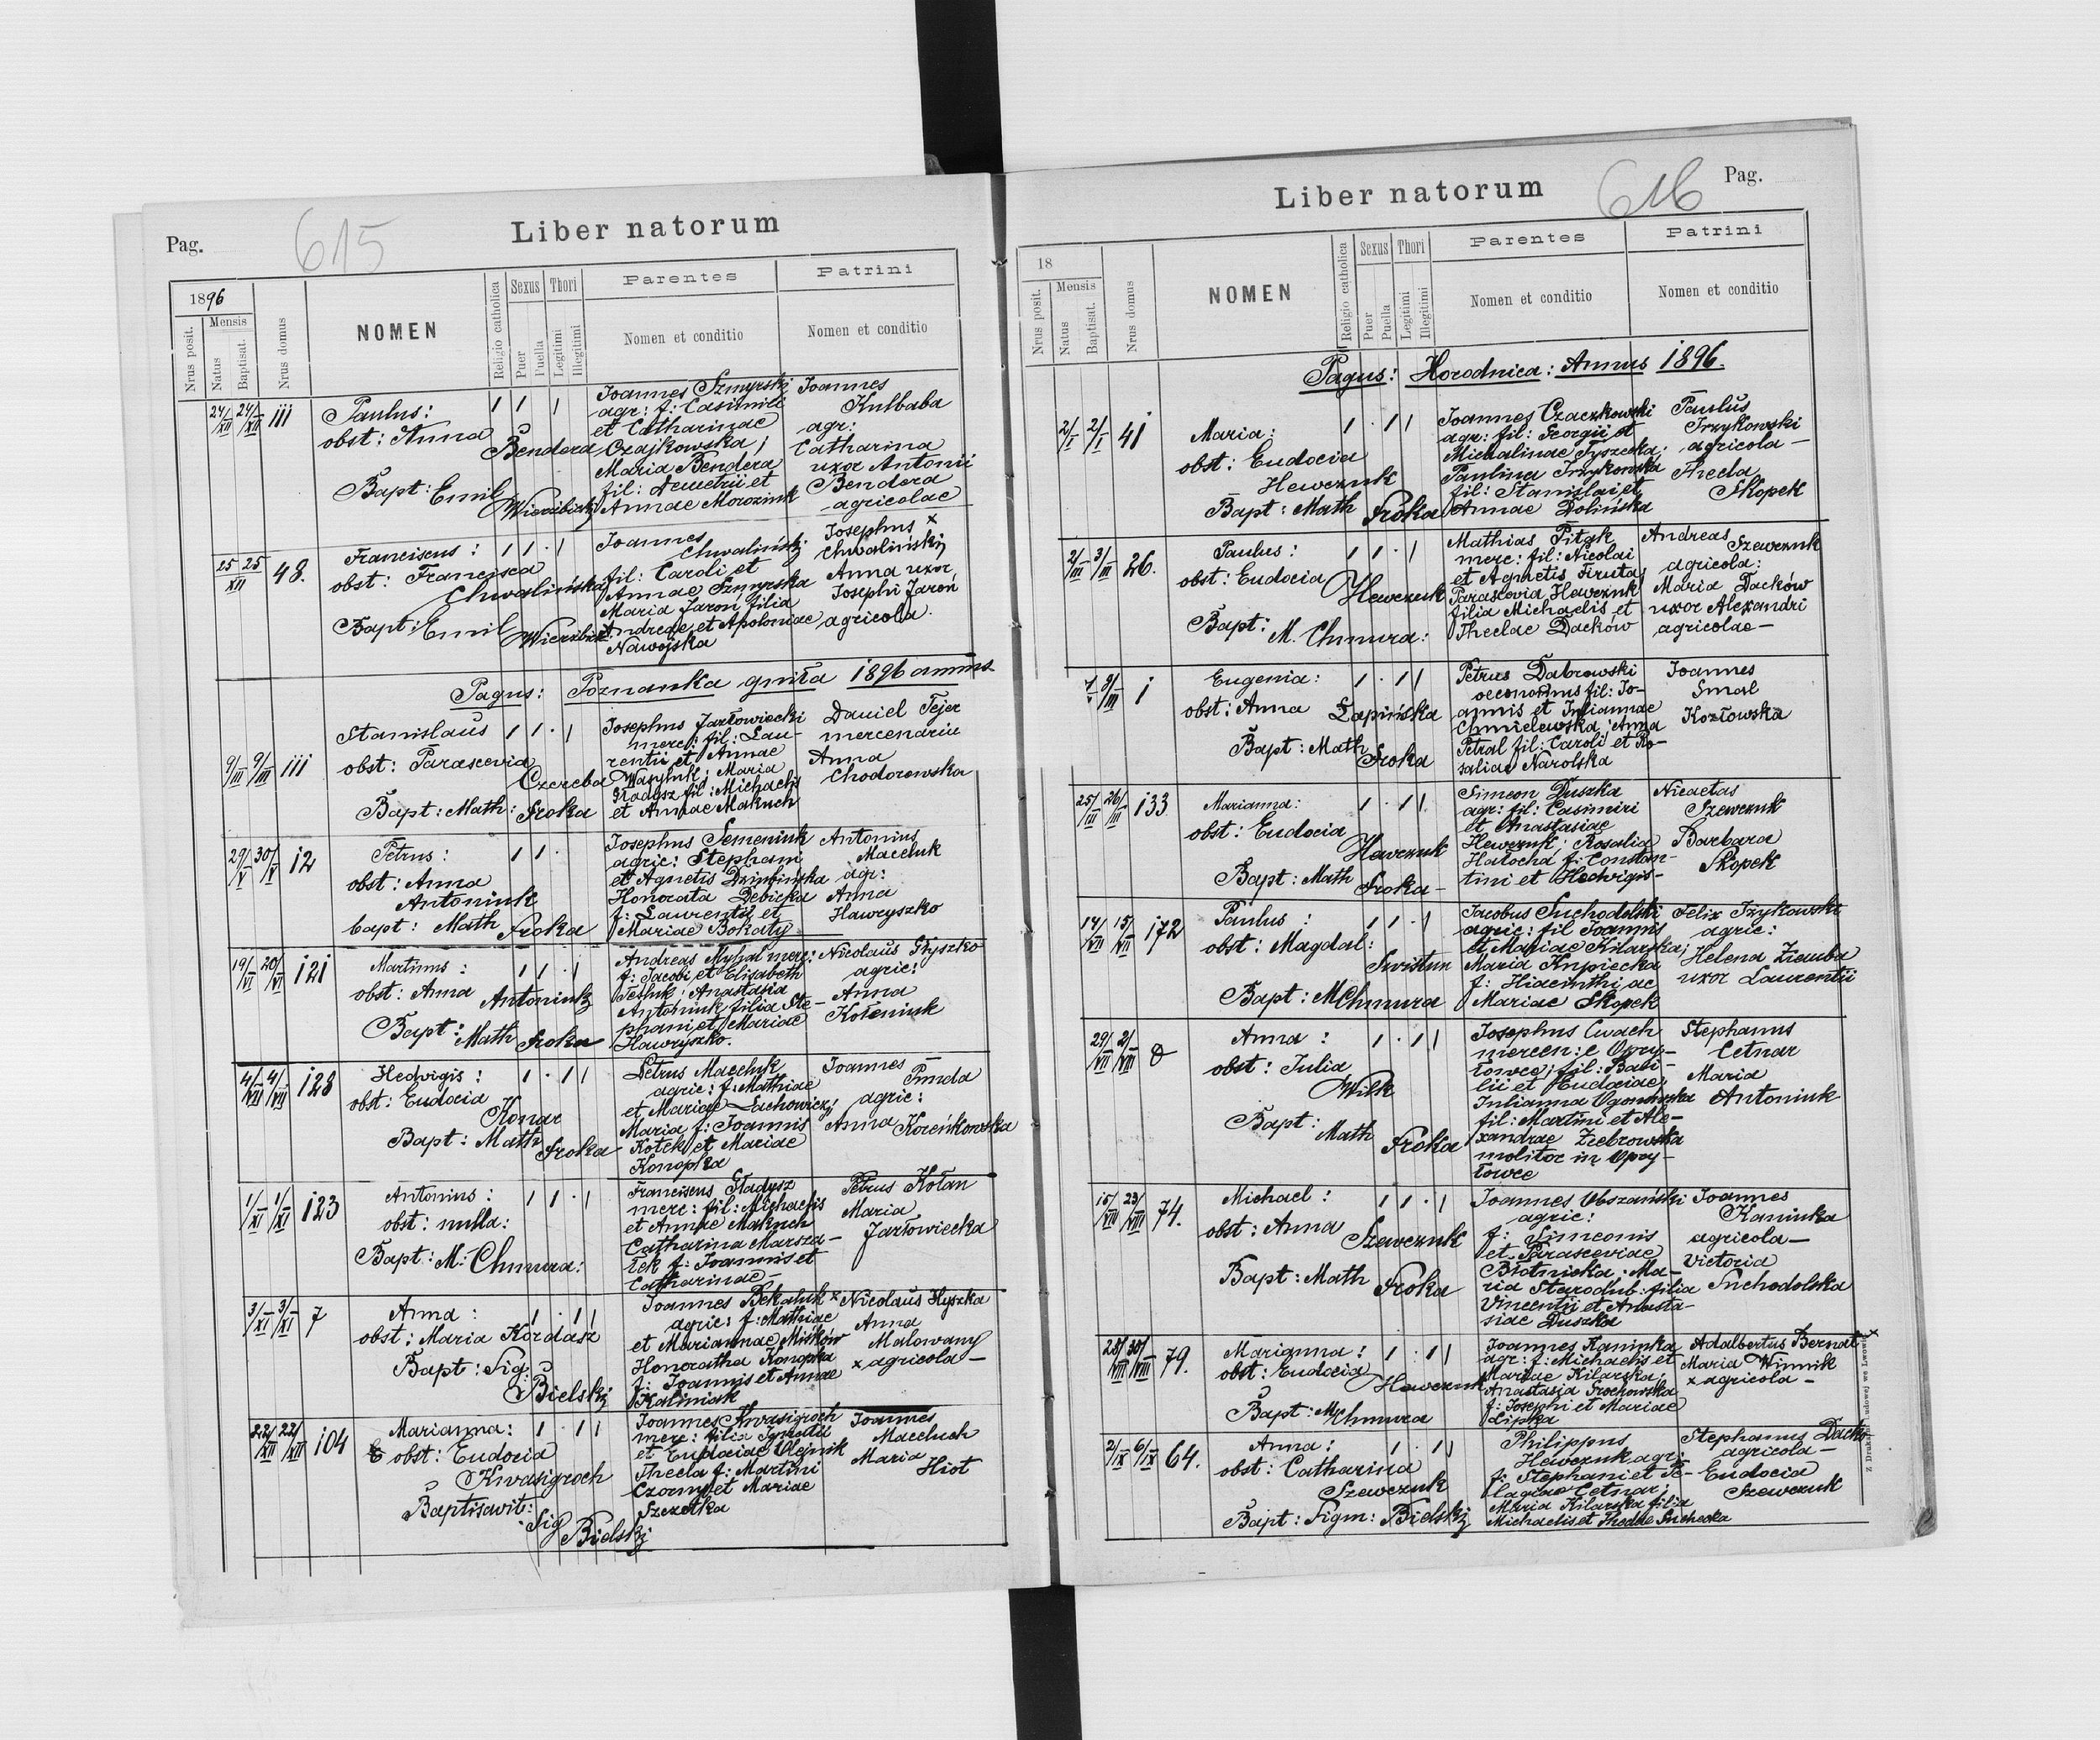 Pag.
615
Liber natorum
1896
Nrus posit.
Mensis
Natus
Baptisat.
Nrus domus
NOMEN
Religio catholica
Sexus
Puer
Puella
Thori
Legitimi
Illegitimi
Parentes
Nomen et conditio
Patrini
Nomen et conditio
24/XII 24/XII 111
Paulus:
obst: Anna
Bendera
Bapt: Emil
Wierzbicki
Joannes Szmyrski
agr: f: Casimiri
et Catharinae
Czajkowska;
Maria Bendera
fil: Demetrii et
Annae Morozink
Joannes
Kulbaba
agr:
Catharina
uxor Antonii
Bendera
agricolae
25 25 XII 48.
Franciscus:
obst: Francisca
Chwalińska
Bapt: Emil
Joannes
Chwaliński
fil: Caroli et
Annae Szmyrska
Maria Jaroń filia
Andreae et Apoloniae
Nawojska
Josephus x
Chwaliński
Anna uxor
Josephi Jaroń
agricola.
Pagus: Poznanka gniła 1896 annus
9/III 9/III 111
Stanislaus
obst: Parascevia
Czereba
Bapt: Math: Sroka
Josephus Jarłowiecki
merc: fil: Lau-
rentii et Annae
Wasyluk; Maria
Gładysz fil: Michaelis
et Annae Makuch
Daniel Fejer
mercenarius
Anna
Chodorowska
29/V 30/V 12
Petrus:
obst: Anna
Antoniuk
bapt: Math Sroka
Josephus Semeniuk
agric: Stephani
et Agnetis
Honorata Debicka
f: Laurentii et
Mariae Bokaty
Antonius
Maceluk
agr:
Anna
Hawryszko
19/VI 20/VI 121
Martinus:
obst: Anna Antoniuk
Bapt: Math Sroka
Andreas Myhal merc:
f: Jacobi et Elisabeth
Anastasia
Antoniuk filia Ste-
phani et Mariae
Hawryszko.
Nicolaus Głyszko
agric:
Anna
Koteniuk
4/VII 4/VII 128
Hedvigis:
obst: Eudocia
Konar
Bapt: Math Sroka
Petrus Maceluk
agric: f: Mathiae
et Mariae Lachowicz;
Maria f: Joannis
Kotek et Mariae
Konopka
Joannes
Pinda
agric:
Anna Koreńkowska
1/XI 1/XI 123
Antonius:
obst: nulla:
Bapt: M: Chmura:
Franciscus Gładysz
merc: fil: Michaelis
et Annae Makuch
Catharina Marsza-
łek f: Joannis et
Catharinae-
Petrus Kotan
Maria
Jarłowiecka
3/XI 3/XI 7
Anna:
obst: Maria Kordasz
Bapt: Sig:
Bielski
Joannes Bekaluk
agric: f: Mathiae
et Mariannae Misków
Honoratha Konopka
f: Joannis et Annae
Kaliniak
x Nicolaus Hyszka
Anna
Malowany
x agricola-
22/XII 22/XII 104
Marianna:
obst: Eudocia
Kwasigroch
Baptisavit:
Sig
Bielski
Joannes Kwasigroch
merc: filia Ignatii
et Eudociae Olejnik
Thecla f: Martini
Czorny et Mariae
Szczotka
Joannes
Maceluch
Maria
Hiot
Liber natorum
616
Pag.
18
Nrus posit.
Mensis
Natus
Baptisat.
Nrus domus
NOMEN
Religio catholica
Sexus
Puer
Puella
Thori
Legitimi
Illegitimi
Parentes
Nomen et conditio
Patrini
Nomen et conditio
Pagus: Horodnica: Annus 1896.
2/I 2/I 41
Maria:
obst: Eudocia
Hewczuk
Bapt: Math Sroka
Joannes Czaczkowski
agr: fil: Georgii et
Michalinae Tyszecka;
Paulina Irzykowska
fil: Stanislai et
Annae Dolińska
Paulus
Irzykowski
agricola-
Thecla
Skopek
2/III 3/III 26.
Paulus:
obst: Eudocia
Hewczuk
Bapt:
M. Chmura:
Mathias Pitak
merc: fil: Nicolai
et Agnetis Firuta;
Parascevia Hewczuk
filia Michaelis et
Theclae Dacków
Andreas
Szewczuk
agricola:
Maria Dacków
uxor Alexandri
agricolae-
III 1
Eugenia:
obst: Anna Łapińska
Bapt: Math Sroka
Petrus Dabrowski
oeconomus fil: Jo-
annis et Juliannae
Chmielewska; Anna
Petral fil: Caroli et Ro-
saliae Narolska
Joannes
Smal
Kozłowska
25/III 26/III 133
Marianna:
obst: Eudocia
Hewczuk
Bapt: Math
Sroka-
Simeon Duszka
agr: fil: Casimiri
et Anastasiae
Hewczuk; Rosalia
Hałocha f: Constan-
tini et Hedvigis-
Nicaetas
Szewczuk
Barbara
Skopek
14/VII 15/VII 172
Paulus:
obst: Magdal:
Swistun
Bapt: M Chmura
Jacobus Suchodolski
agric: fil Joannis
et Mariae Kilarska;
Maria Krupiecka
f: Hiacinthi ac
Mariae Skopek
Felix Iżykowski
agric:
Helena Ziemba
uxor Laurentii
29/VII 2/VIII
Anna:
obst: Julia
Wilk
Bapt:
Math Sroka
Josephus Cwach
mercen: e Opry-
łowce; fil: Basi-
lii et Eudociae;
Julianna Ogonowska
fil: Martini et Ale-
xandrae Zrebrowska
molitor in Opry-
łowce
Stephanus
Cetnar
Maria
Antoniuk
15/VIII 23/VIII 74.
Michael:
obst: Anna
Szewczuk
Bapt: Math Sroka
Joannes Obszański
agric:
f: Simeonis
et Parasceviae
Błotnicka; Ma-
ria Starodub: filia
Vincentii et Anasta-
siae Duszka
Joannes
Kaminka
agricola-
Victoria
Suchodolska
28/VIII 30/VIII 79.
Marianna:
obst: Eudocia
Hewczuk
Bapt: M Chmura
Joannes Kaminka
agr: f: Michaelis et
Mariae Kilarska;
Anastasia Grochowska
f: Josephi et Mariae
Lipka
Adalbertus Bernat x
Maria Winnik
x agricola-
2/IX 6/IX 64.
Anna:
obst: Catharina
Szewczuk
Bapt: Sigm: Bielski
Philippus
Hewczuk agr:
f: Stephani et Pe-
lagiae Cetnar;
Maria Kilarska filia
Michaelis et Theclae Suchecka
Stephanus Dacków
agricola-
Eudocia
Szewczuk